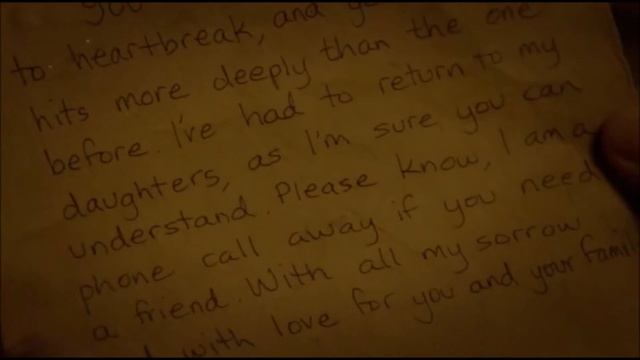 you
to heartbreak, and
hits more deeply than the one
before. I've had to return to my
daughters, as I'm sure you can
understand. Please know, I am a
phone call away if you need
a friend. With all my sorrow
with love for you and your